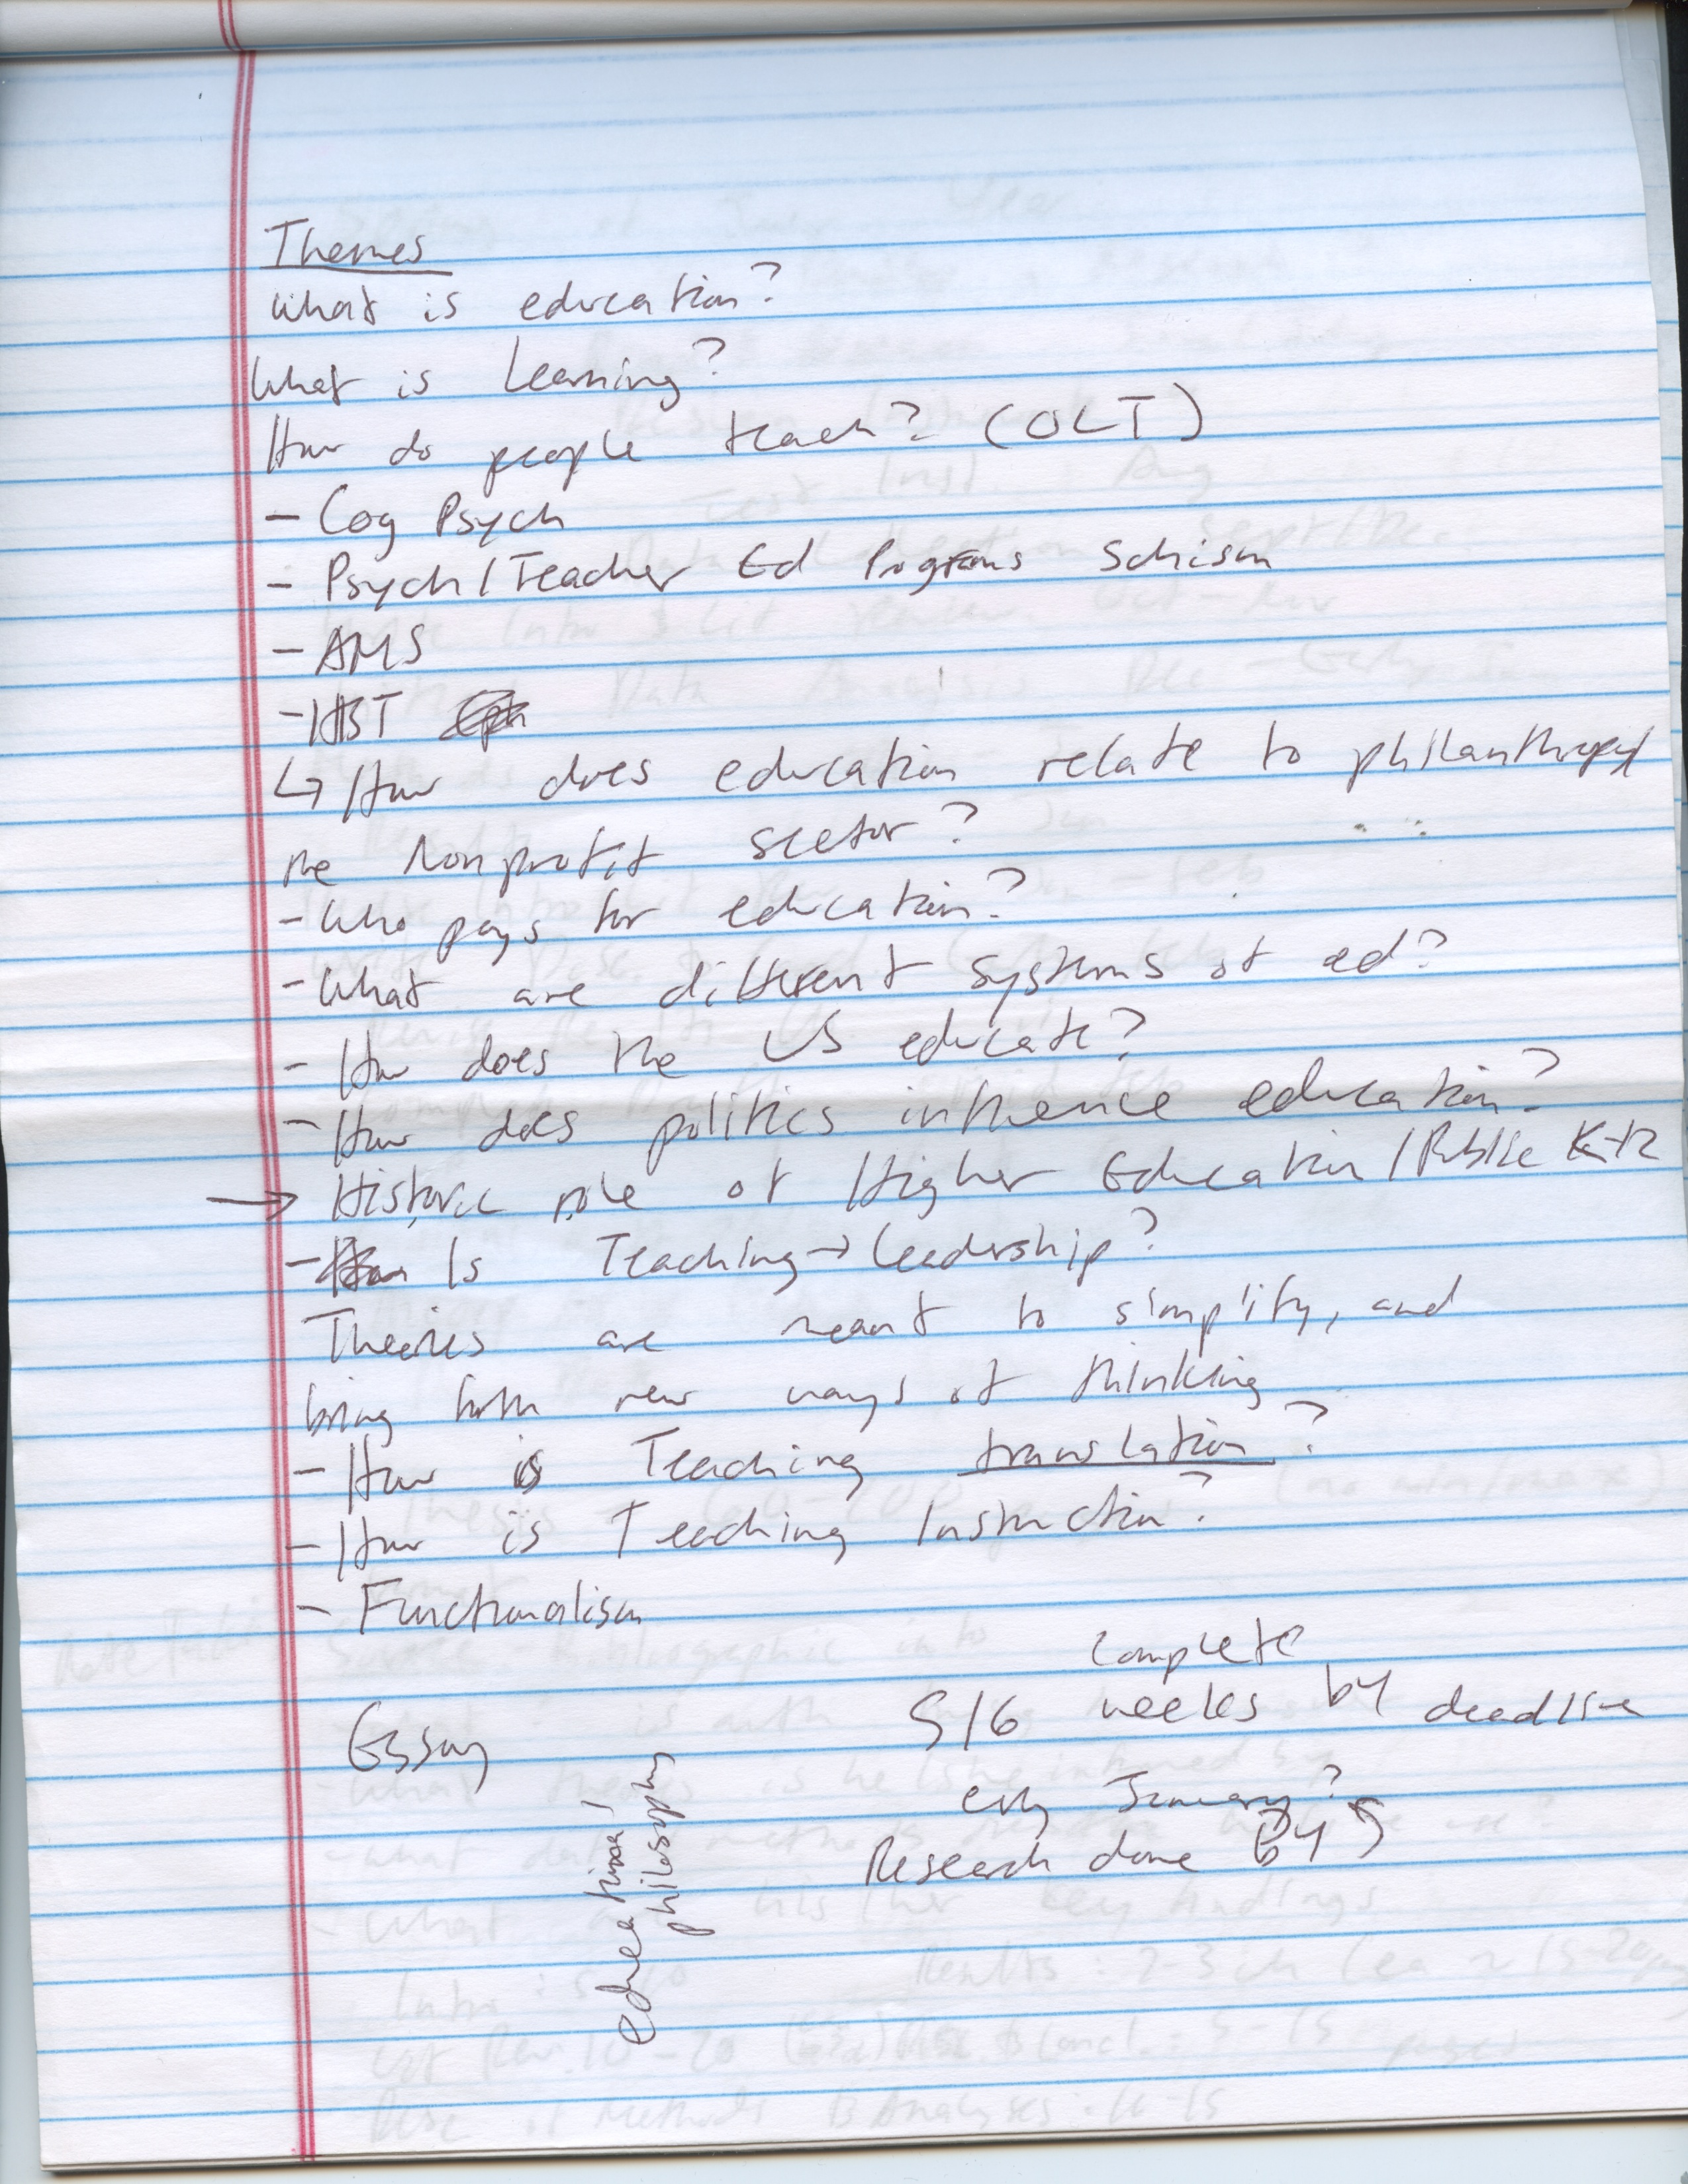 Themes
What is education?
What is Learning?
How do people teach? (OLT)
- Cog Psych
- Psych/Teacher Ed Programs Schism
- AMS
- HBT
↳ How does education relate to philanthropy/
the nonprofit sector?
- Who pays for education?
- What are different systems of ed?
- How does the US educate?
- How does politics influence education?
→ Historic role of Higher Education/Public K-12
- Is Teaching → Leadership?
Theories are meant to simplify, and
bring forth new ways of thinking
- How is Teaching translation?
- How is Teaching Instruction?
- Functionalism
Complete
5/6 weeks by deadline
Essay
early January?
Research done By
educational
philosophy